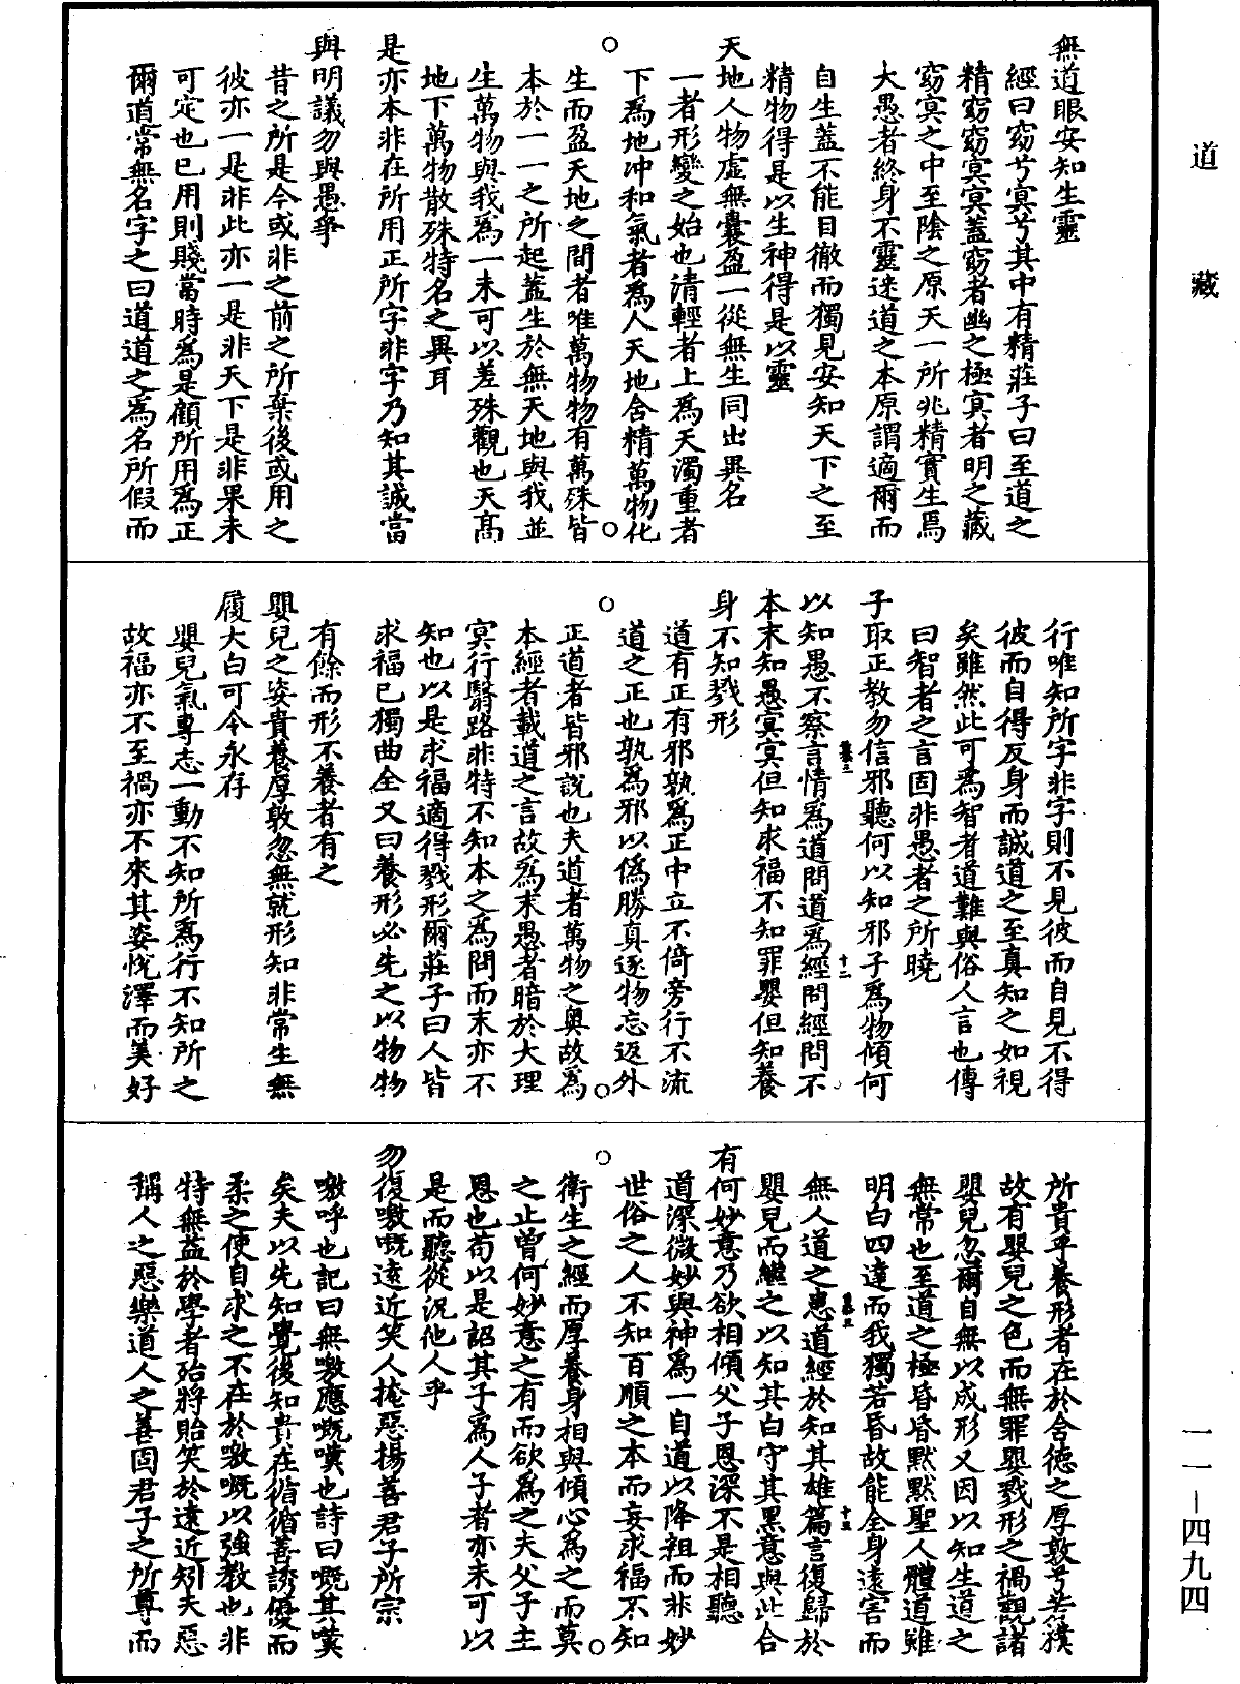 道藏
無道眼安知生靈
經曰窈兮冥兮其中有精莊子曰至道之
精窈窈冥冥蓋窈者幽之極冥者明之藏
窈冥之中至陰之原天一所兆精實生焉
大愚者終身不靈迷道之本原謂適爾而
自生蓋不能目徹而獨見安知天下之至
精物得是以生神得是以靈
天地人物虛無囊盈一從無生同出異名
一者形變之始也清輕者上爲天濁重者
下爲地冲和氣者爲人天地含精萬物化
生而盈天地之間者唯萬物物有萬殊皆
本於一一之所起蓋生於無天地與我並
生萬物與我爲一未可以差殊觀也天高
地下萬物散殊特名之異耳
是亦本非在所用正所字非字乃知其誠當
與明議勿與愚爭
昔之所是今或非之前之所棄後或用之
彼亦一是非此亦一是非天下是非果未
可定也已用則賤當時爲是顧所用爲正
爾道常無名字之曰道道之爲名所假而
行唯知所字非字則不見彼而自見不得
彼而自得反身而誠道之至真知之如視
矣雖然此可爲智者道難與俗人言也傳
曰智者之言固非愚者之所曉
子取正教勿信邪聽何以知邪子爲物傾何
以知愚不察言情爲道問道爲經問經問不
本末知愚冥冥但知求福不知罪嬰但知養
身不知戮形
道有正有邪孰爲正中立不倚旁行不流
道之正也孰爲邪以僞勝真逐物忘返外
正道者皆邪說也夫道者萬物之奧故爲
本經者載道之言故爲末愚者暗於大理
冥行翳路非特不知本之爲問而末亦不
知也以是求福適得戮形爾莊子曰人皆
求福已獨曲全又曰養形必先之以物物
有餘而形不養者有之
嬰兒之姿貴養厚敦忽無就形知非常生無
履大白可令永存
嬰兒氣專志一動不知所爲行不知所之
故福亦不至禍亦不來其姿悅澤而美好
所貴乎養形者在於含德之厚敦兮若樸
故有嬰兒之色而無罪嬰戮形之禍觀諸
嬰兒忽爾自無以成形又因以知生道之
無常也至道之極昏昏默默聖人體道雖
明白四達而我獨若昏故能全身遠害而
無人道之患道經於知其雄篇言復歸於
嬰兒而繼之以知其白守其黑意與此合
有何妙意乃欲相傾父子恩深不是相聽
道深微妙與神爲一自道以降粗而非妙
世俗之人不知百順之本而妄求福不知
衛生之經而厚養身相與傾心爲之而莫
之止曾何妙意之有而欲爲之夫父子主
恩也苟以是詔其子爲人子者亦未可以
是而聽從況他人乎
勿復噭嘅遠近笑人掩惡揚善君子所宗
噭呼也記曰無噭應嘅嘆也詩曰嘅其嘆
矣夫以先知覺後知貴在循循善誘優而
柔之使自求之不在於噭嘅以強教也非
特無益於學者殆將貽笑於遠近矧夫惡
稱人之惡樂道人之善固君子之所尊而
一一－四九四